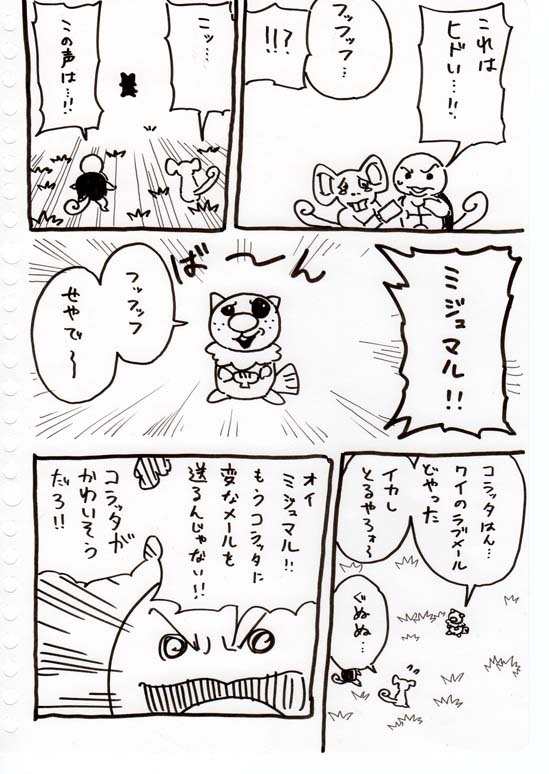 これは
ヒドい…!!
フッフッフ…
!!?
ニッ…
この声は…!!
ミジュマル!!
ば〜ん
フッフッフ
せやで〜
コラッタはん…
ワイのラブメール
どやった
イカし
とるやろォ〜
ぐぬぬ…
オイ
ミジュマル!!
もうコラッタに
変なメールを
送るんじゃない!!
コラッタが
かわいそう
だろ!!